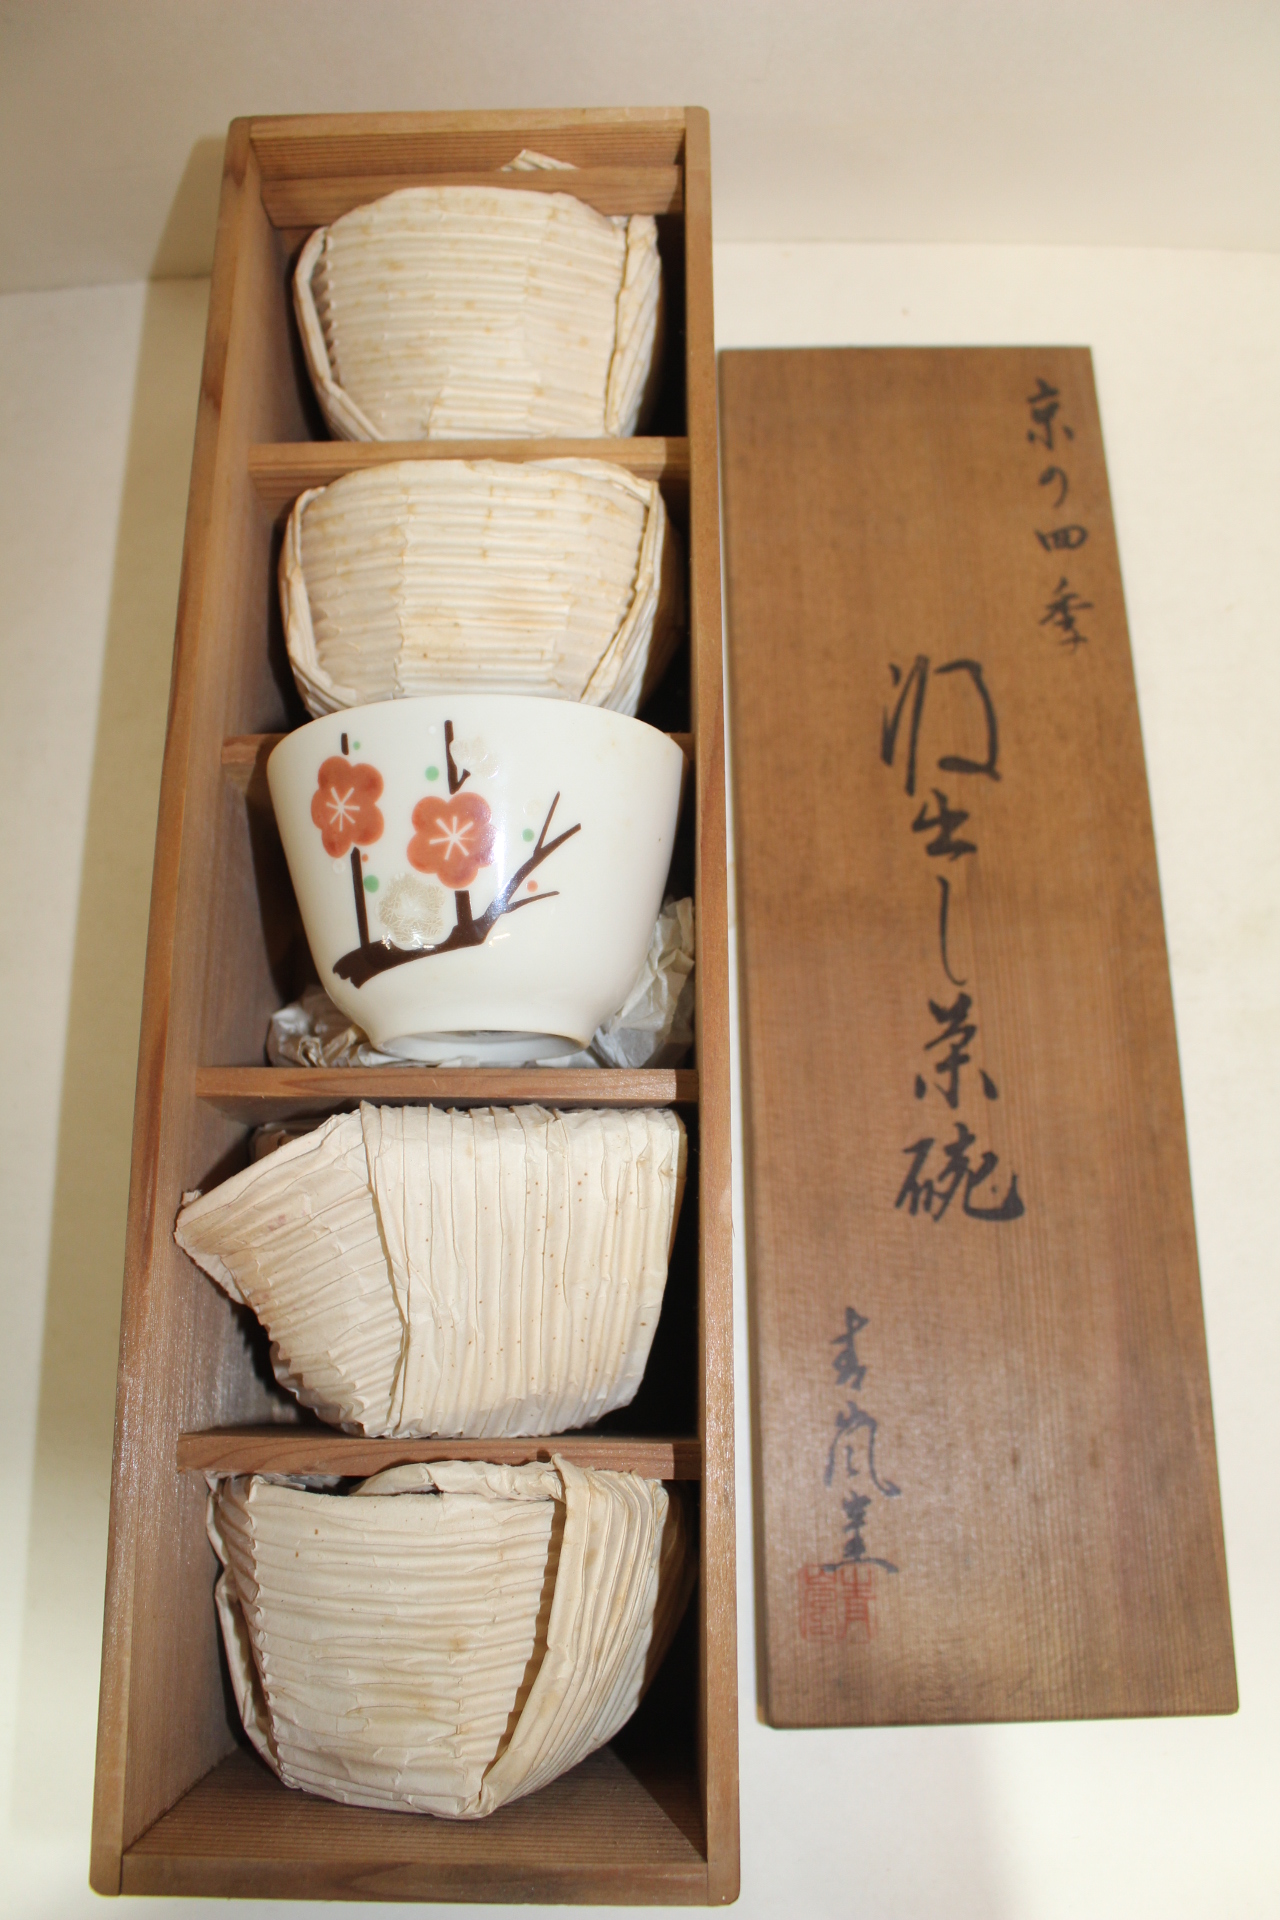 京の四季
汲出し茶碗
青嵐窯